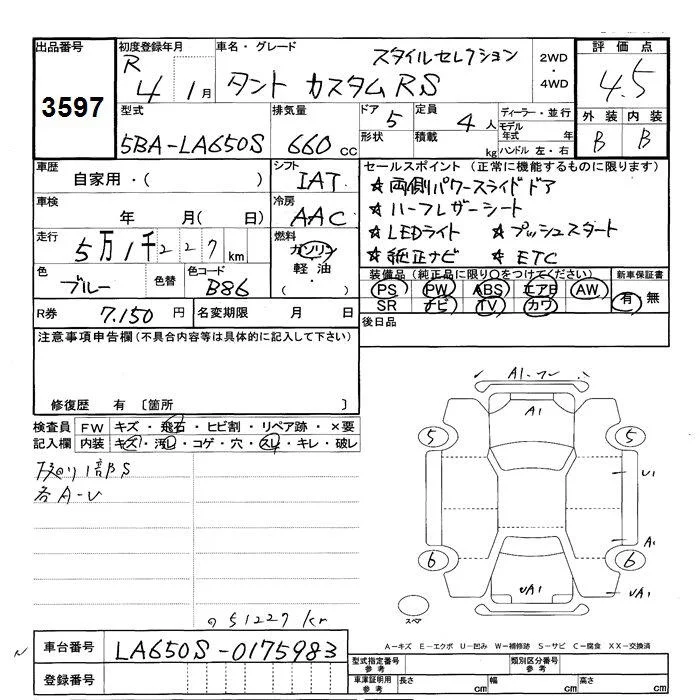 出品番号
3597
初度登録年月
R 4 1月
車名・グレード
スタイルセレクション
タント カスタムRS
2WD
・
4WD
評価点
4.5
型式
5BA-LA650S
排気量
660 CC
ドア 5
形状
定員 4人
積載 kg
ディーラー・並行
モデル年式 年
ハンドル 左・右
外装 内装
B B
車歴
自家用・( )
シフト
IAT
セールスポイント(正常に機能するものに限ります)
☆両側パワースライドドア
☆ハーフレザーシート
☆LEDライト ☆プッシュスタート
☆純正ナビ ☆ETC
車検
年 月( 日)
冷房
AAC
走行
5万1千227km
燃料
ガソリン
軽油
( ・ )
色
ブルー
色替
色コード
B86
装備品(純正品に限り○をつけてください)
PS PW ABS エアB AW
SR ナビ TV カワ
新車保証書
有 無
R券 7,150円
名変期限 月 日
後日品
注意事項申告欄(不具合内容等は具体的に記入して下さい)
修復歴 有 〔箇所 〕
検査員
記入欄
FW キズ・飛石・ヒビ割・リペア跡・×要
内装 キズ・汚レ・コゲ・穴・スレ・キレ・破レ
下廻り1部S
各A-U
A1
A1
5 5
U1
A1
6 6
UA1
UA1
スペア
51227km
車台番号
LA650S-0175983
登録番号
A-キズ E-エクボ U-凹み W-補修跡 S-サビ C-腐食 XX-交換済
型式指定番号
参考
類別区分番号
参考
車庫証明用
参考
長さ cm
幅 cm
高さ cm